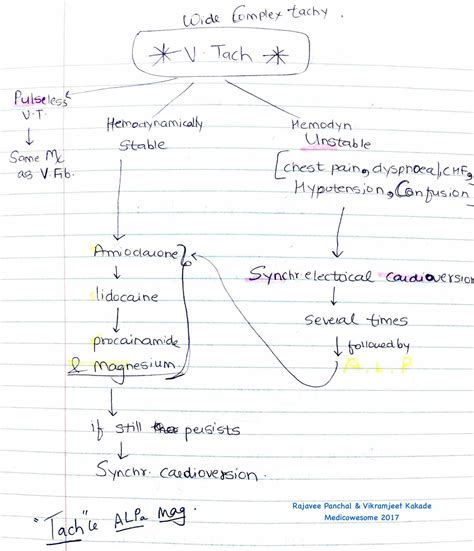 Wide Complex tachy.
V. Tach
Pulseless
V.T.
Same Mx
as V.Fib.
Hemodynamically
Stable
Hemodyn
Unstable
[chest pain, dyspnoea, CHF,
Hypotension, Confusion]
Amiodarone
lidocaine
procainamide
& magnesium.
if still persists
Synchr. cardioversion.
Synchr electrical cardioversion
Several times
followed by
A, L, P
"Tach"le ALPa Mag.
Rajavee Panchal & Vikramjeet Kakade
Medicowesome 2017